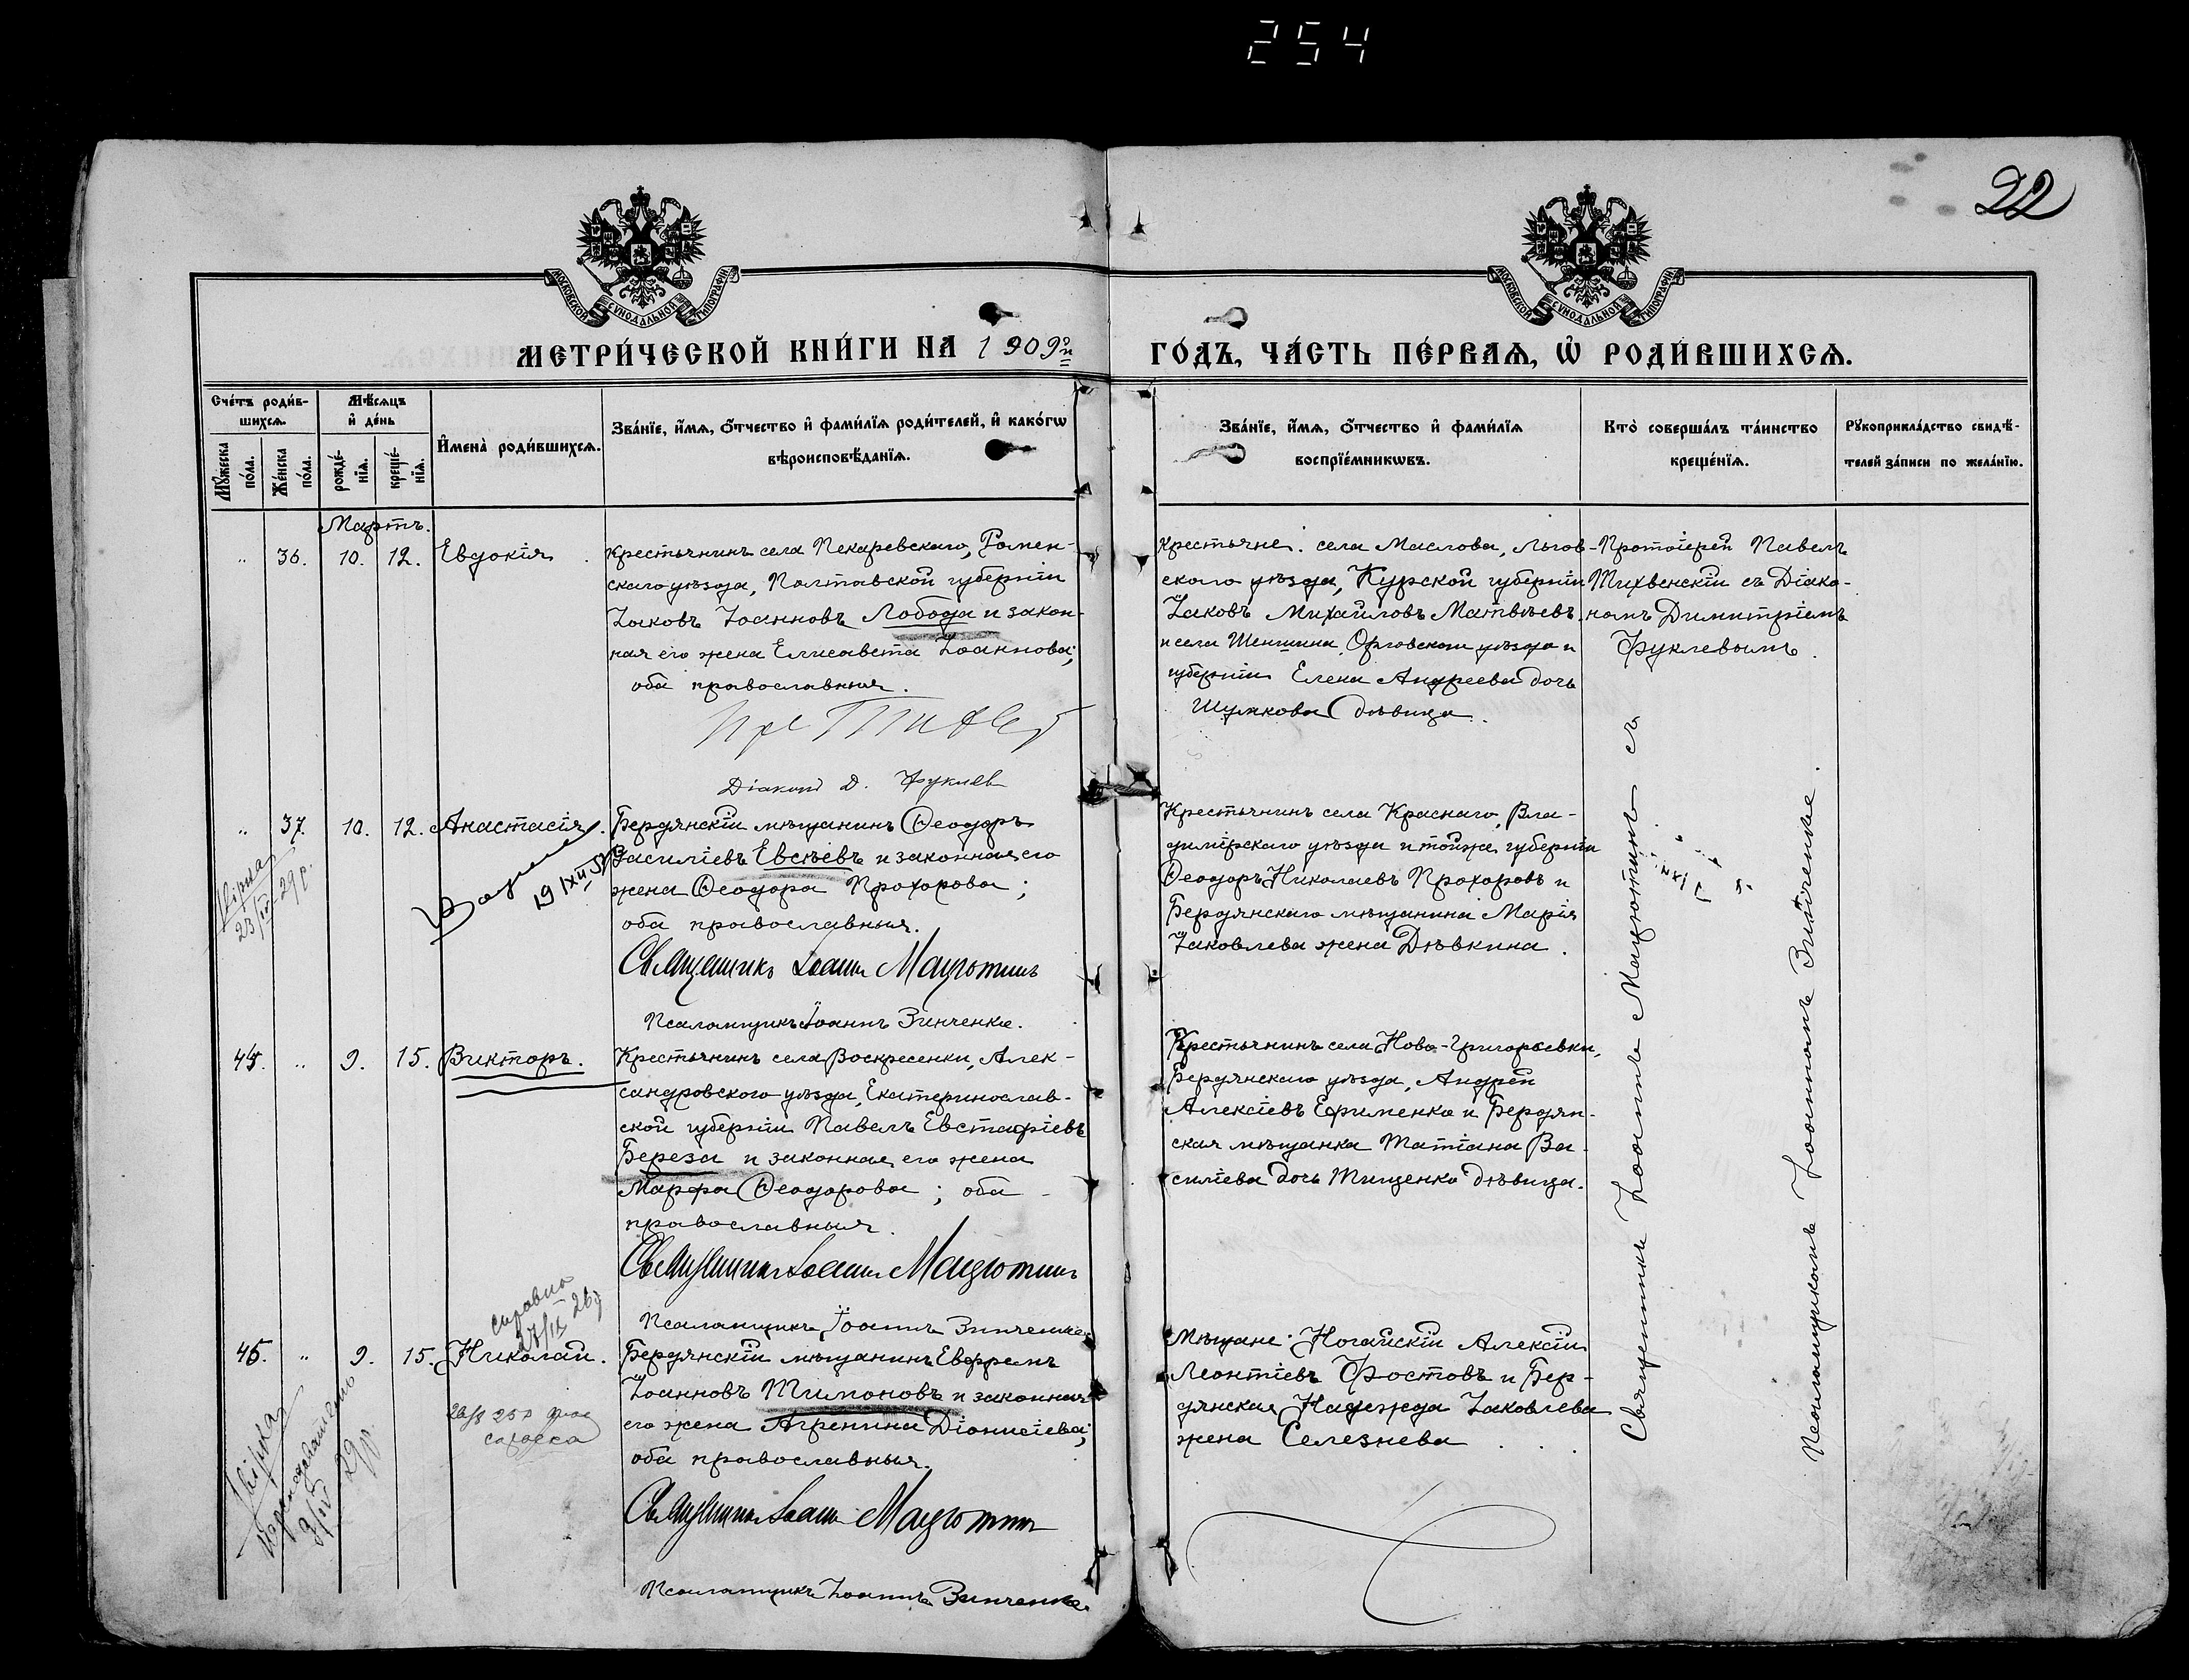 254
22
МОСКОВСКОЙ СУНОДАЛЬНОЙ ТИПОГРАФІИ
МОСКОВСКОЙ СУНОДАЛЬНОЙ ТИПОГРАФІИ
МЕТРИ́ЧЕСКОЙ КНИ́ГИ НА 1909й
ГО́ДЪ, ЧА́СТЬ ПЕ́РВАѦ, Ѡ РОДИ́ВШИХСѦ.
Сче́тъ роди́в-
шихсѧ.
Мѣ́сѧцъ
и҆ де́нь
Мꙋ́жеска
по́ла.
Же́нска
по́ла.
рожде́-
нїѧ.
креще́-
нїѧ.
И҆мена̀ роди́вшихсѧ.
Зва́нїе, и҆́мѧ, ѻ҆́тчество и҆ фами́лїѧ роди́телей, и҆ како́гѡ
вѣроисповѣ́данїѧ.
Зва́нїе, и҆́мѧ, ѻ҆́тчество и҆ фами́лїѧ
воспрїе́мникѡвъ.
Кто̀ соверша́лъ та́инство
креще́нїѧ.
Рꙋкоприкла́дство свидѣ́-
телей за́писи по жела́нїю.
Мартъ.
" 36. 10. 12. Евдокія.
крестьянинъ села Пекаревскаго, Ромен-
скаго уѣзда, Полтавской губерніи
Іаковъ Іоанновъ Лобода и закон-
ная его жена Елисавета Іоаннова;
оба православныя.
Діаконъ Д. Фуклев
Крестьяне: села Маслова, Льгов-
скаго уѣзда, Курской губерніи
Іаковъ Михаиловъ Матвѣевъ
и села Шеншина, Орловскаго уѣзда и
губерніи Елена Андреева дочь
Шумкова дѣвица.
Протоіерей Павелъ
Тихвенскій съ Діако-
номъ Димитріемъ
Фуклевымъ.
" 37. 10. 12. Анастасія.
19 IXII
29 р.
Бердянскій мѣщанинъ Ѳеодоръ
Василіевъ Евсѣевъ и законная его
жена Ѳеодора Прохорова;
оба православныя.
Священникъ Іоаннъ Мацютинъ
Псаломщикъ Іоаннъ Зинченко.
Крестьянинъ села Краснаго, Вла-
димірскаго уѣзда и тойже губерніи
Ѳеодоръ Николаевъ Прохоровъ и
Бердянскаго мѣщанина Марія
Іаковлева жена Дѣвкина.
Священникъ Іоаннъ Мацютинъ съ
Псаломщикомъ Іоанномъ Зинченке.
45. " 9. 15. Викторъ.
Крестьянинъ села Воскресенки, Алек-
сандровского уѣзда, Екатеринослав-
ской губерніи Павелъ Евстафіевъ
Береза и законная его жена
Марфа Ѳеодорова; оба
православныя.
Священникъ Іоаннъ Мацютинъ
Псаломщикъ Іоаннъ Зинченко
Крестьянинъ села Ново-Григорьевки,
Бердянскаго уѣзда, Андрей
Алексіевъ Ефименко и Бердян-
ская мѣщанка Татіана Ва-
силіева дочь Тищенко дѣвица.
справка
27/IX 26 р
46. " 9. 15. Николай.
Бердянскій мѣщанинъ Евфремъ
Іоанновъ Тимоновъ и законная
его жена Агрепина Діонисіева;
оба православныя.
Священникъ Іоаннъ Мацютинъ
Псаломщикъ Іоаннъ Зинченко.
Мѣщане: Ногайскій Алексій
Леонтіевъ Фостовъ и Бер-
дянская Надежда Іаковлева
жена Селезнева